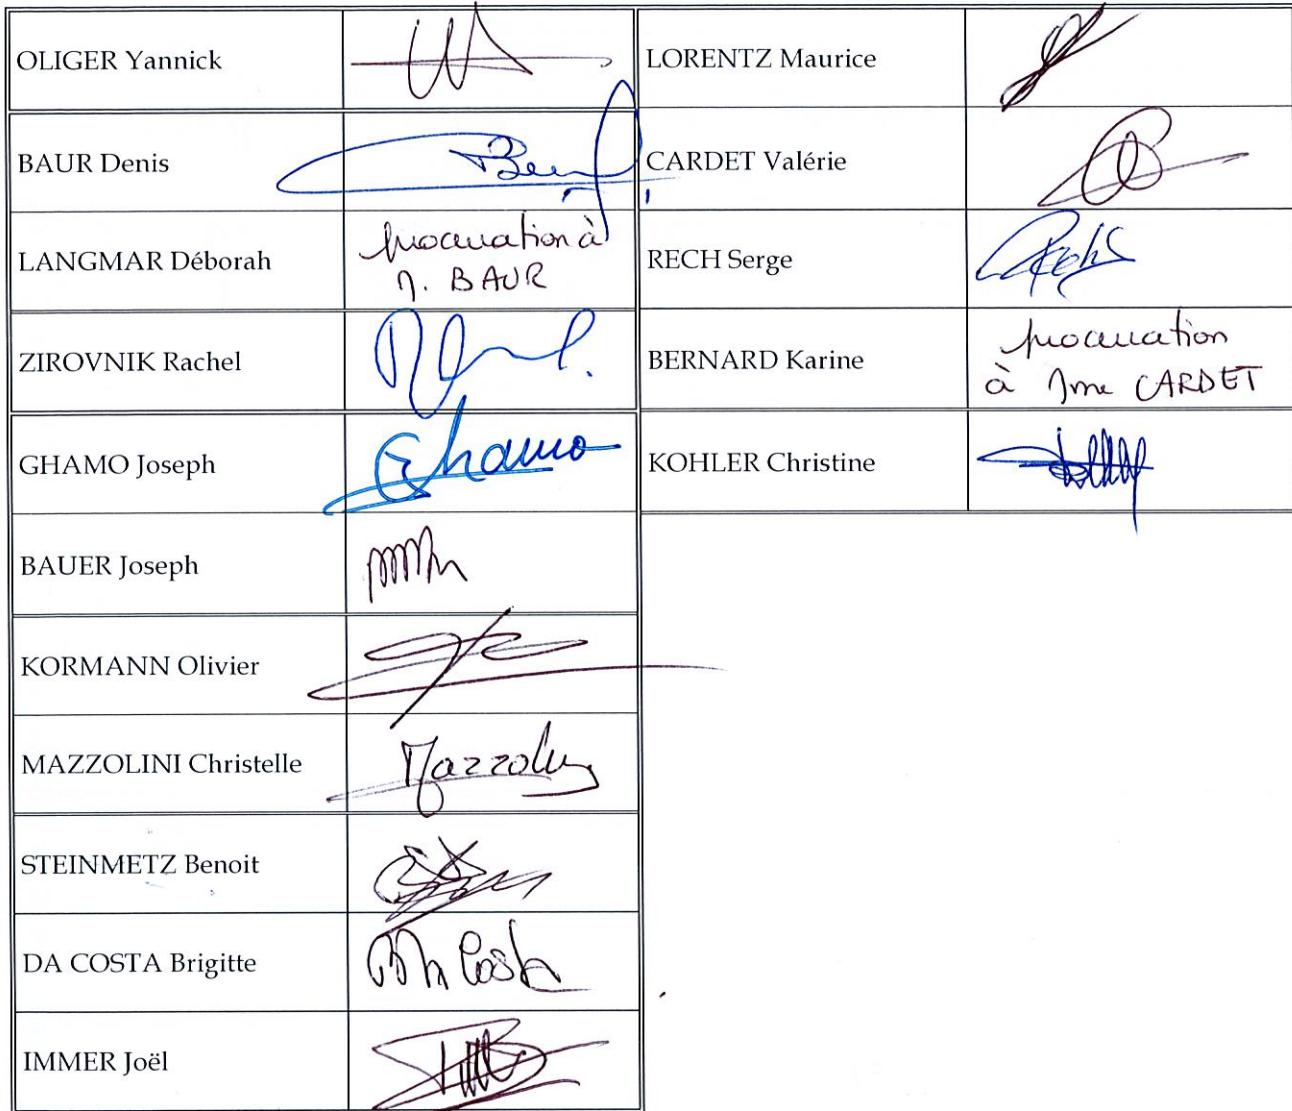 OLIGER Yannick
BAUR Denis
LANGMAR Déborah
procuration à
M. BAUR
ZIROVNIK Rachel
GHAMO Joseph
Ghamo
BAUER Joseph
KORMANN Olivier
MAZZOLINI Christelle
STEINMETZ Benoit
DA COSTA Brigitte
IMMER Joël
LORENTZ Maurice
CARDET Valérie
RECH Serge
BERNARD Karine
procuration
à Mme CARDET
KOHLER Christine